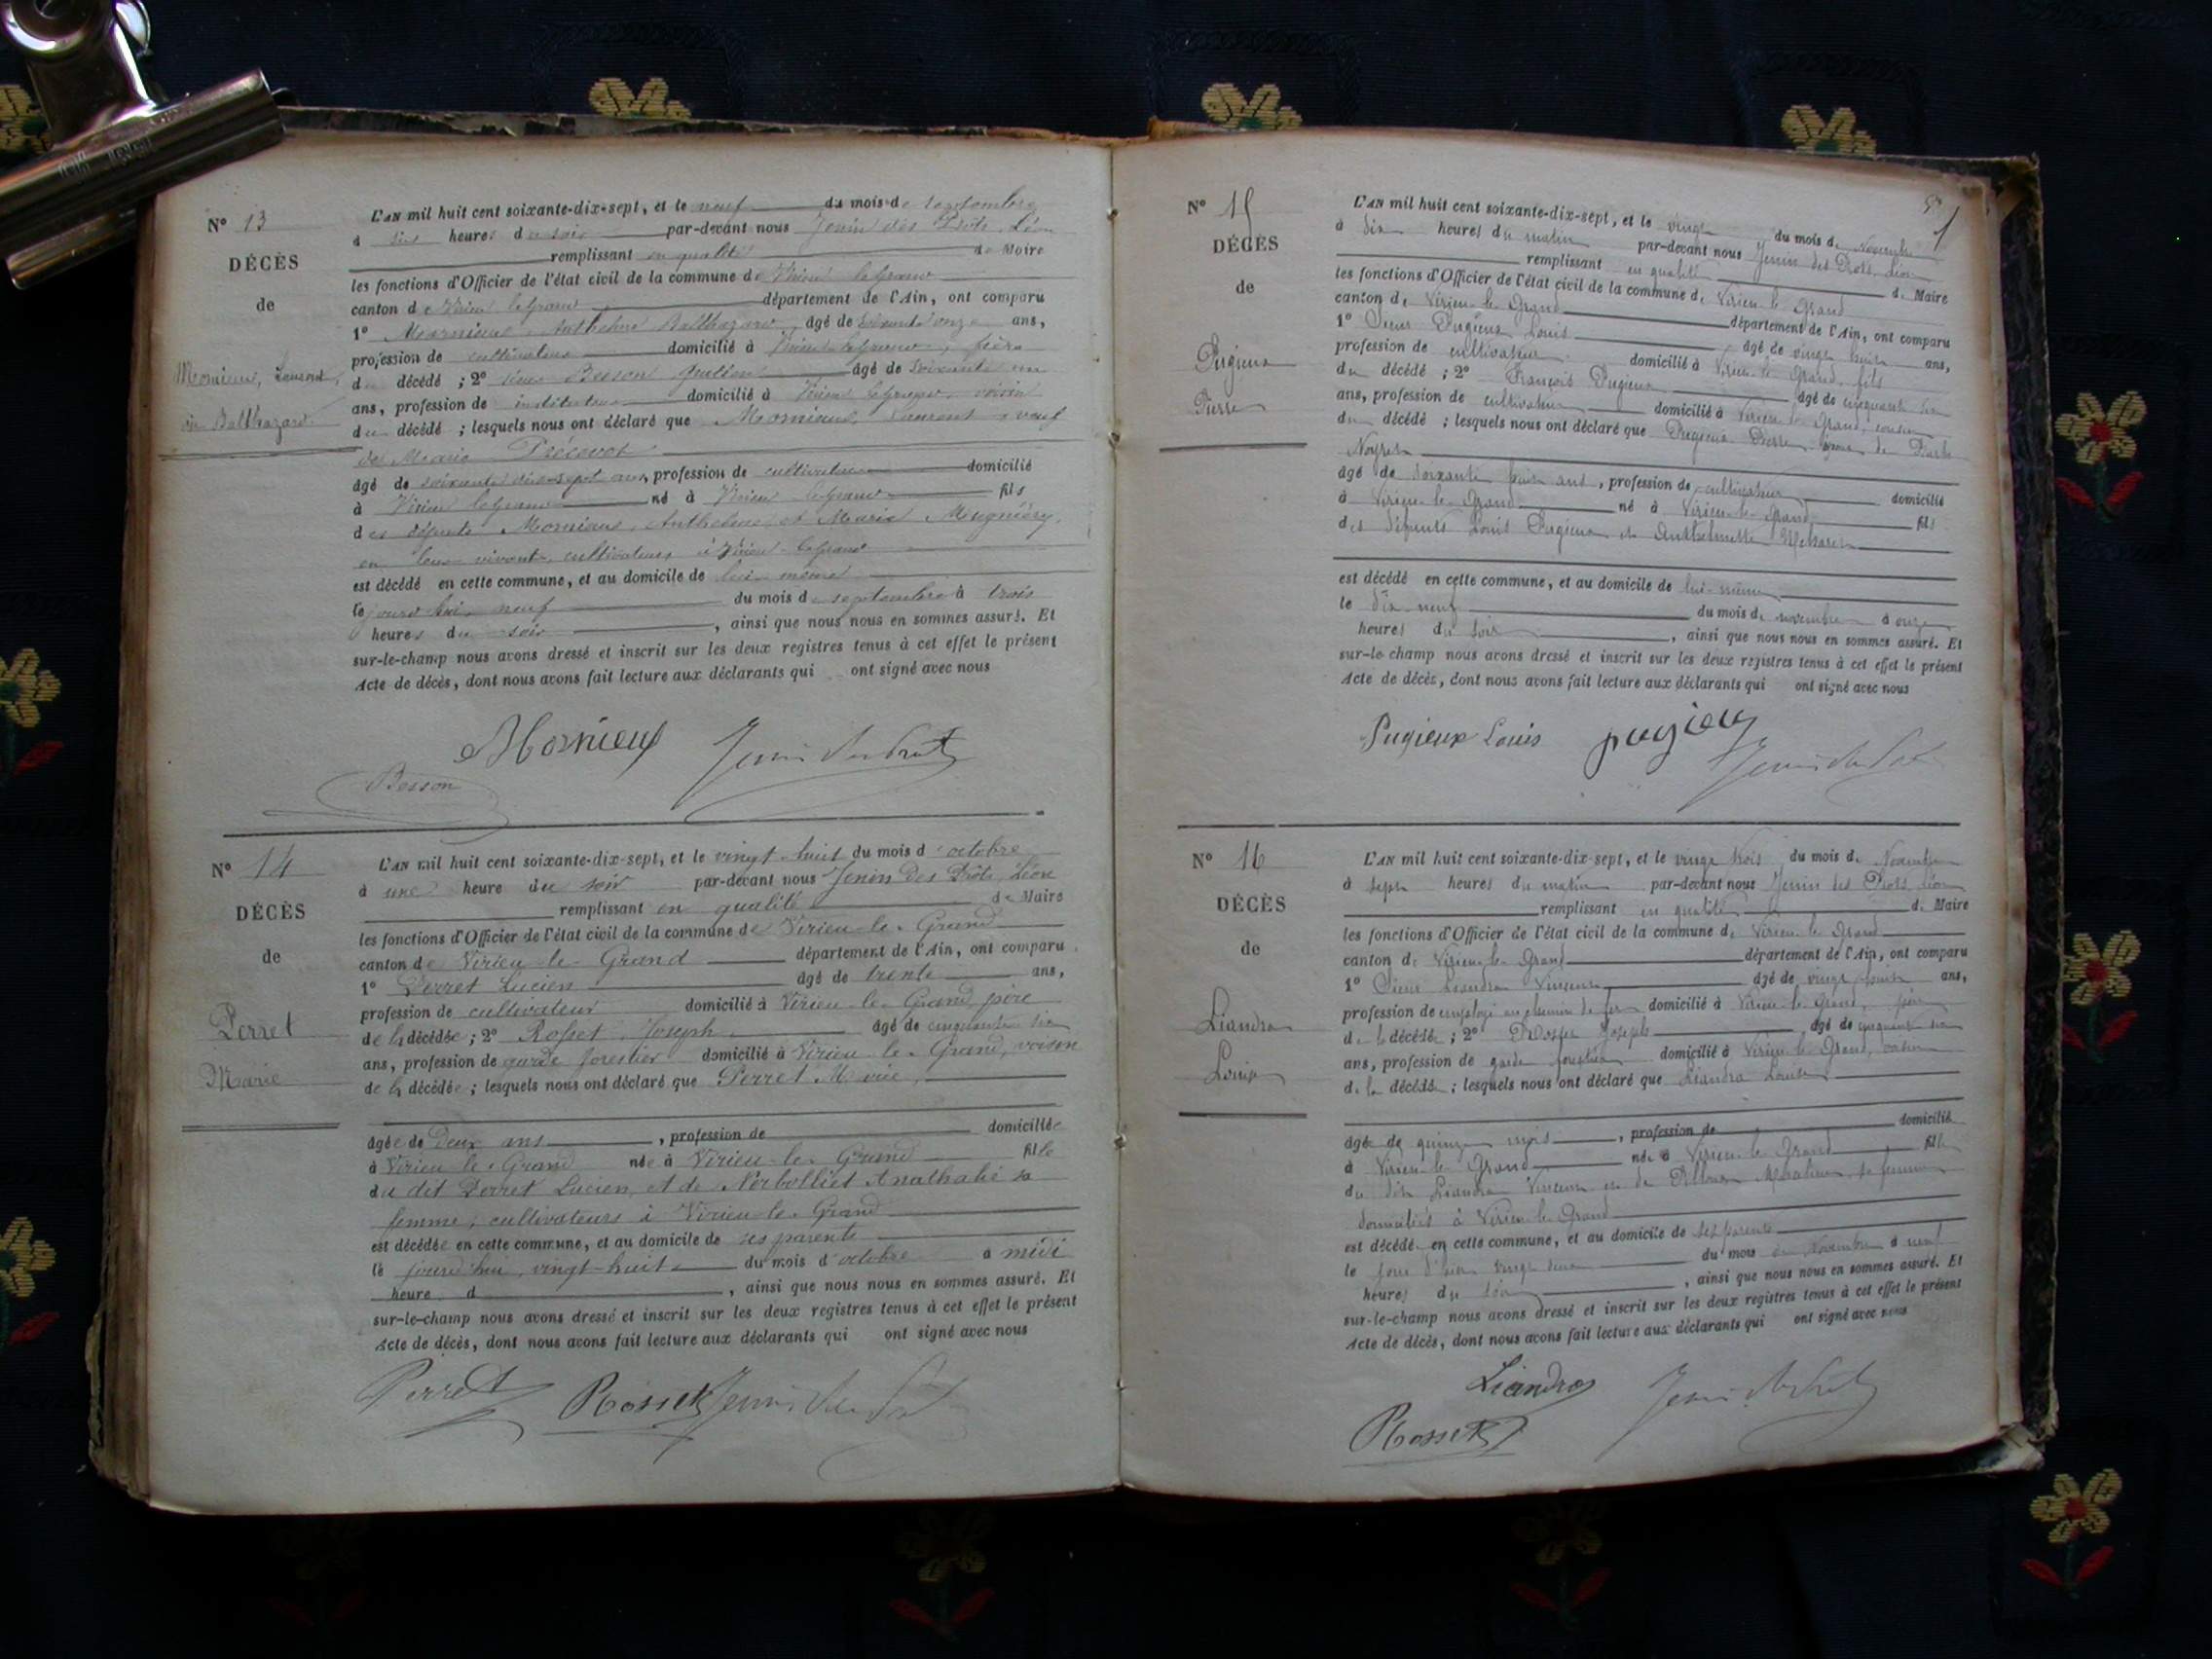 N° 13
DÉCÈS
de
Mornieux, Laurent,
Balthazard.
L'AN mil huit cent soixante-dix-sept, et le neuf du mois de septembre
à six heures du soir par-devant nous Jenin des Prôts, Léon
remplissant en qualité de Moire
les fonctions d'Officier de l'état civil de la commune de Virieu legrand
canton de Virieu legrand département de l'Ain, ont comparu
1° Mornieux, Anthelme Balthazard, âgé de soixante onze ans,
profession de cultivateur domicilié à Virieu-legrand, frère
du décédé ; 2° sieur Besson âgé de soixante un
ans, profession de instituteur domicilié à Virieu legrand, voisin
du décédé ; lesquels nous ont déclaré que Mornieux, Laurent, veuf
de Marie
âgé de soixante dix-sept ans, profession de cultivateur domicilié
à Virieu legrand né à Virieu legrand fils
des défunts Mornieux, Anthelme et Marie
en leur vivant, cultivateurs à Virieu-legrand
est décédé en cette commune, et au domicile de lui-même
le jourd'hui neuf du mois de septembre à trois
heures du soir, ainsi que nous nous en sommes assuré. Et
sur-le-champ nous avons dressé et inscrit sur les deux registres tenus à cet effet le présent
Acte de décès, dont nous avons fait lecture aux déclarants qui ont signé avec nous
Mornieux Jenin des Prôts
Besson
N° 14
DÉCÈS
de
Perret
Marie
L'AN mil huit cent soixante-dix-sept, et le vingt-huit du mois d'octobre
à une heure du soir par-devant nous Jenin Des Prôts, Léon
remplissant en qualité de Maire
les fonctions d'Officier de l'état civil de la commune de Virieu-le-Grand
canton de Virieu-le-Grand département de l'Ain, ont comparu
1° Perret Lucien âgé de trente ans,
profession de cultivateur domicilié à Virieu-le-Grand, père
de la décédée ; 2° Rosset Joseph âgé de cinquante six
ans, profession de garde forestier domicilié à Virieu-le-Grand, voisin
de la décédée ; lesquels nous ont déclaré que Perret Marie,
âgée de Deux ans, profession de domiciliée
à Virieu-le-Grand née à Virieu-le-Grand fille
du dit Perret Lucien, et de Nerbolliet Anathalie sa
femme, cultivateurs à Virieu-le-Grand
est décédée en cette commune, et au domicile de ses parents
le jourd'hui, vingt-huit du mois d'octobre à midi
heure d, ainsi que nous nous en sommes assuré. Et
sur-le-champ nous avons dressé et inscrit sur les deux registres tenus à cet effet le présent
Acte de décès, dont nous avons fait lecture aux déclarants qui ont signé avec nous
Perret Rosset Jenin des Prôts
N° 15
DÉCÈS
de
Pugieux
Pierre
L'AN mil huit cent soixante-dix-sept, et le vingt du mois de Novembre
à dix heures du matin par-devant nous Jenin des Prots, Léon
remplissant en qualité de Maire
les fonctions d'Officier de l'état civil de la commune de Virieu-le-Grand
canton de Virieu-le-Grand département de l'Ain, ont comparu
1° Sieur Pugieux Louis âgé de vingt huit ans,
profession de cultivateur domicilié à Virieu-le-Grand, fils
du décédé ; 2° François Pugieux âgé de cinquante six
ans, profession de cultivateur domicilié à Virieu-le-Grand, cousin
du décédé ; lesquels nous ont déclaré que Pugieux Pierre époux de
âgé de soixante ans, profession de cultivateur domicilié
à Virieu-le-Grand né à Virieu-le-Grand fils
des défunts Louis Pugieux et Anthelmette
est décédé en cette commune, et au domicile de lui-même
le dix-neuf du mois de novembre à onze
heures du soir, ainsi que nous nous en sommes assuré. Et
sur-le-champ nous avons dressé et inscrit sur les deux registres tenus à cet effet le présent
Acte de décès, dont nous avons fait lecture aux déclarants qui ont signé avec nous
Pugieux Louis pugieux
Jenin des Prôts
N° 16
DÉCÈS
de
Liandra
Louise
L'AN mil huit cent soixante-dix-sept, et le vingt trois du mois de Novembre
à sept heures du matin par-devant nous Jenin des Prots, Léon
remplissant en qualité de Maire
les fonctions d'Officier de l'état civil de la commune de Virieu-le-Grand
canton de Virieu-le-Grand département de l'Ain, ont comparu
1° Sieur Liandra Vincent âgé de vingt huit ans,
profession de employé au chemin de fer domicilié à Virieu-le-Grand, père
de la décédée ; 2° Rosset Joseph, âgé de cinquante six
ans, profession de garde forestier domicilié à Virieu-le-Grand, voisin
de la décédée ; lesquels nous ont déclaré que Liandra Louise
âgée de quinze mois, profession de domiciliée
à Virieu-le-Grand née à Virieu-le-Grand fille
du dit Liandra Vincent et de sa femme
domiciliés à Virieu-le-Grand
est décédée en cette commune, et au domicile de ses parents
le jour d'hier vingt deux du mois de Novembre à neuf
heures du soir, ainsi que nous nous en sommes assuré. Et
sur-le-champ nous avons dressé et inscrit sur les deux registres tenus à cet effet le présent
Acte de décès, dont nous avons fait lecture aux déclarants qui ont signé avec nous
Liandra Jenin des Prôts
Rosset